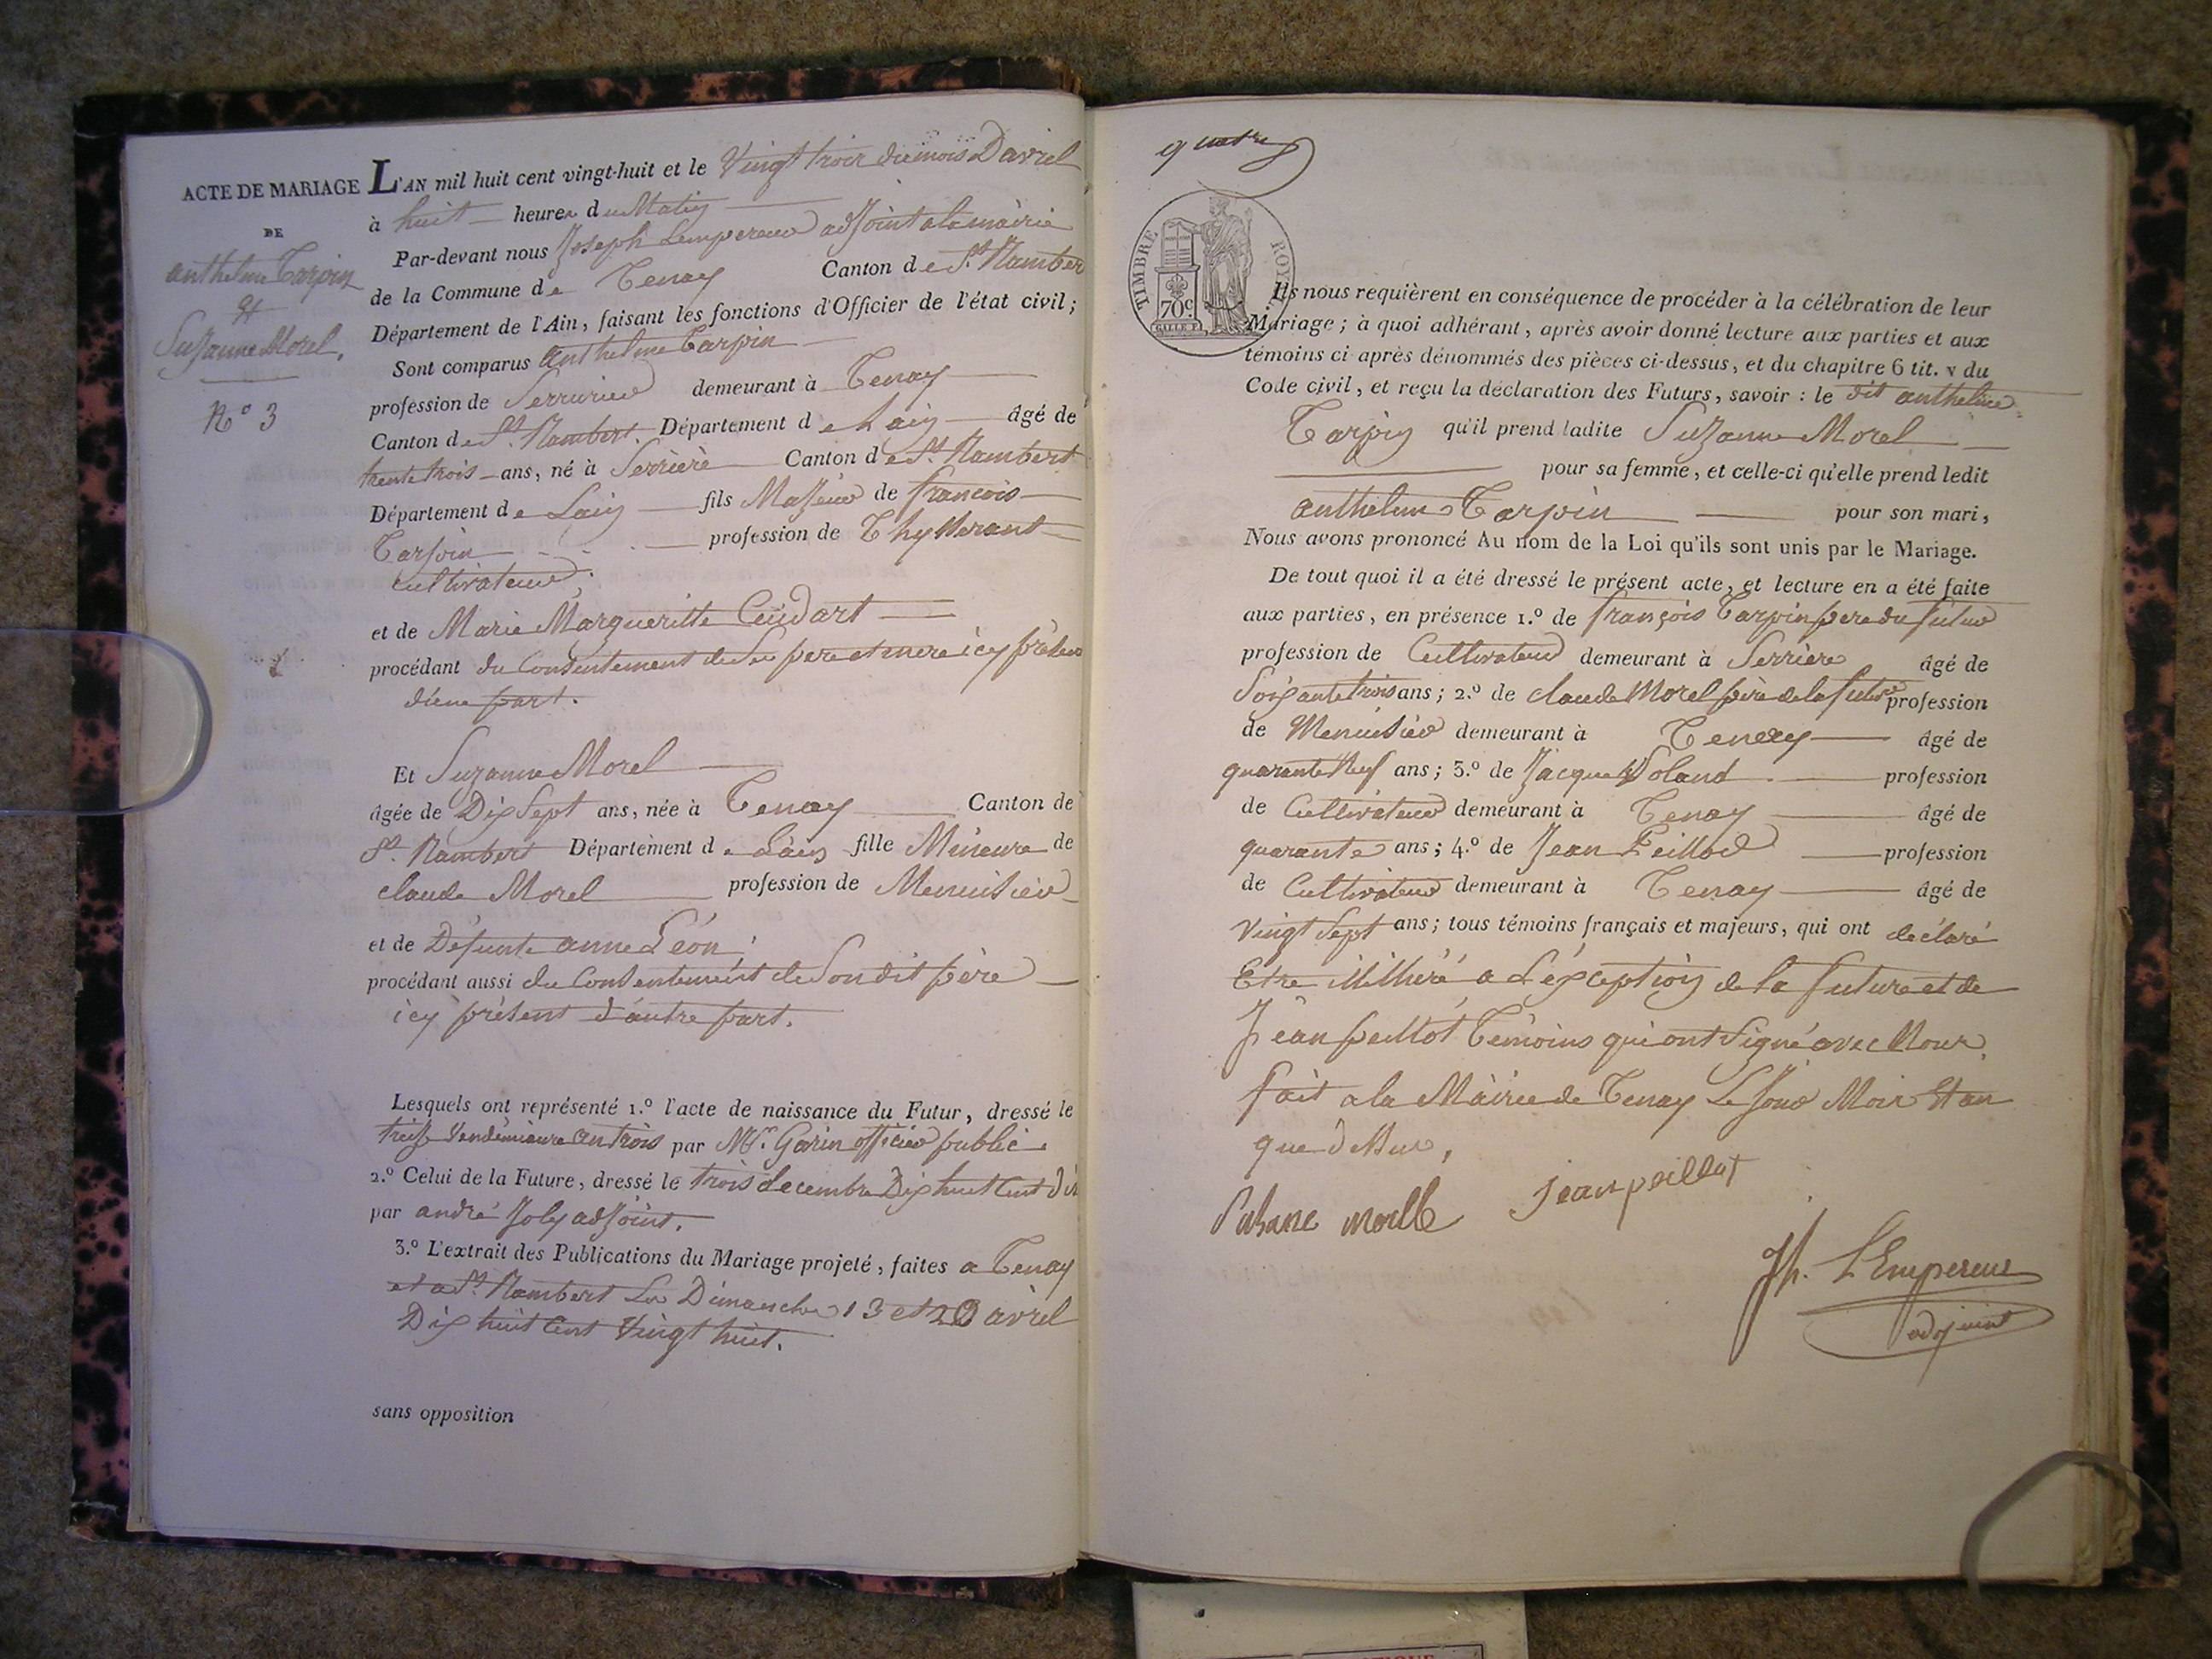 ACTE DE MARIAGE
DE
anthelme Tarpin
et
Suzanne Morel,
N° 3
L'AN mil huit cent vingt-huit et le Vingt trois du mois Davril
à huit heures du Matin
Par-devant nous Joseph Lempereur adjoint a la mairie
de la Commune de Tenay Canton de St. Rambert
Département de l'Ain, faisant les fonctions d'Officier de l'état civil;
Sont comparus anthelme Tarpin
profession de Serrurier demeurant à Tenay
Canton de St. Rambert Département de Lain âgé de
trente trois ans, né à Serrière Canton de St Rambert
Département de Lain fils Majeur de francois
Tarpin profession de
cultivateur,
et de Marie Margueritte
procédant du Consentement de Ses pere et mere icy présen
d'une part.
Et Suzanne Morel
âgée de Dix Sept ans, née à Tenay Canton de
St. Rambert Département de Lain fille Mineure de
claude Morel profession de Menuisier
et de Défunte anne Léon;
procédant aussi du Consentement de Son dit père
icy présent d'autre part.
Lesquels ont représenté 1.° l'acte de naissance du Futur, dressé le
treize Vendémiaire an trois par Mr. Garin officier public
2.° Celui de la Future, dressé le trois decembre Dix huit Cent dix
par andré Joly adjoint.
3.° L'extrait des Publications du Mariage projeté, faites a Tenay
et a St. Rambert Les Dimanches 13 et 20 avril
Dix huit Cent Vingt huit.
sans opposition
quatre
TIMBRE ROYAL
70c.
Ils nous requièrent en conséquence de procéder à la célébration de leur
Mariage; à quoi adhérant, après avoir donné lecture aux parties et aux
témoins ci-après dénommés des pièces ci-dessus, et du chapitre 6 tit. v du
Code civil, et reçu la déclaration des Futurs, savoir : le dit anthelme
Tarpin qu'il prend ladite Suzanne Morel
pour sa femme, et celle-ci qu'elle prend ledit
anthelme Tarpin pour son mari,
Nous avons prononcé Au nom de la Loi qu'ils sont unis par le Mariage.
De tout quoi il a été dressé le présent acte, et lecture en a été faite
aux parties, en présence 1.° de françois Tarpin pere du futur
profession de Cultivateur demeurant à Serrière âgé de
Soixante trois ans; 2.° de claude Morel père de la future profession
de Menuisier demeurant à Tenay âgé de
quarante Neuf ans; 3.° de Jacques Goland profession
de Cultivateur demeurant à Tenay âgé de
quarante ans; 4.° de Jean Peillod profession
de Cultivateur demeurant à Tenay âgé de
Vingt Sept ans; tous témoins français et majeurs, qui ont déclaré
Etre illitteré a L'éxception de la future et de
Jean peillot Temoins qui ont Signé avec Nous.
fait a la Mairie de Tenay Le Jour Mois Et an
que dessus,
Susane morelle
jean peillot
Jh. L'Empereur
adjoint